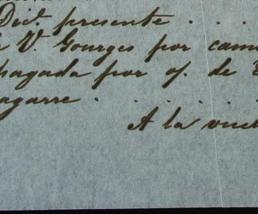 Dicẹ. presente . . .
V. Gourges por cam
pagada por o/. de
agarre . . . .
A la vuel